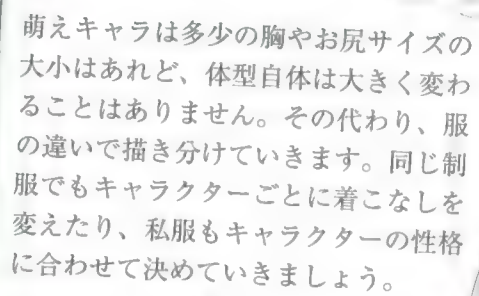 萌えキャラは多少の胸やお尻サイズの
大小はあれど、体型自体は大きく変わ
ることはありません。その代わり、服
の違いで描き分けていきます。同じ制
服でもキャラクターごとに着こなしを
変えたり、私服もキャラクターの性格
に合わせて決めていきましょう。